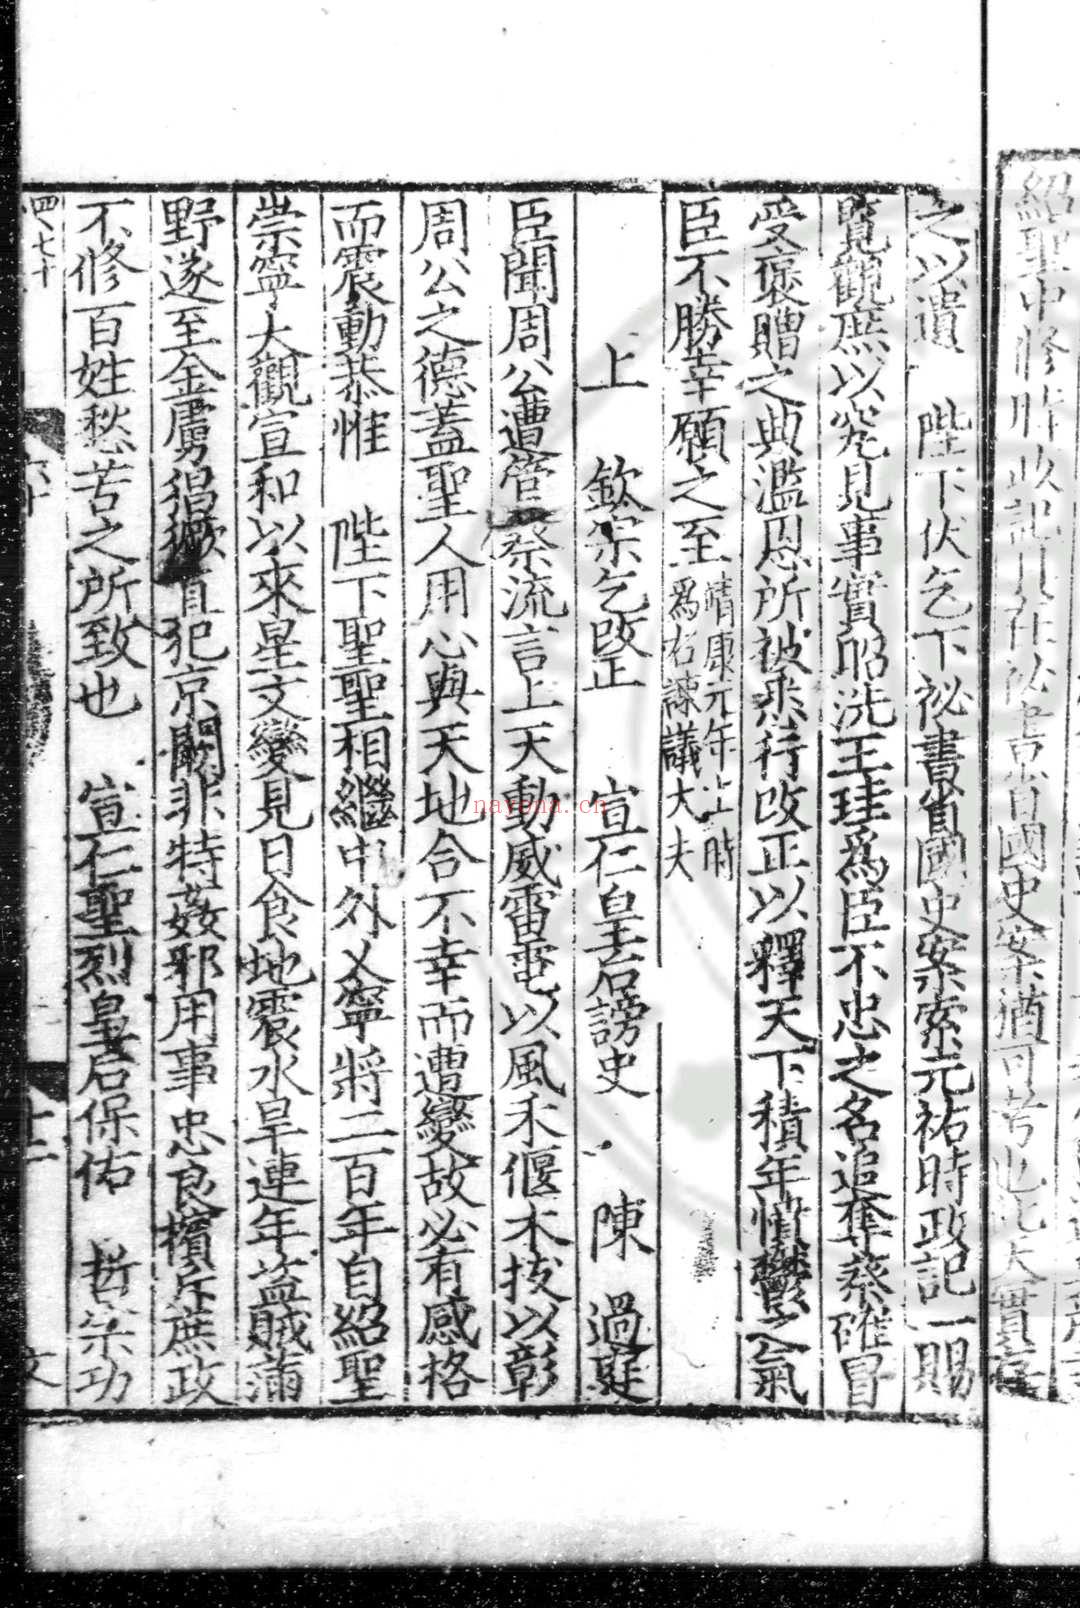 紹聖中修時政記具在祕書省國史案猶可考也
之以遺　陛下伏乞下祕書省國史案索元祐時政記一賜
覽觀庶以究見事實昭洗王珪爲臣不忠之名追奪蔡確冒
受褒贈之典濫恩所被悉行改正以釋天下積年憤鬱之氣
臣不勝幸願之至靖康元年上時
爲右諫議大夫
上　欽宗乞改正　宣仁皇后謗史　陳過庭
臣聞周公遭管蔡流言上天動威雷電以風禾偃木拔以彰
周公之德蓋聖人用心與天地合不幸而遭變故必有感格
而震動恭惟　陛下聖聖相繼中外乂寧將二百年自紹聖
崇寧大觀宣和以來星文變見日食地震水旱連年盜賊滿
野遂至金虜猖獗直犯京闕非特姦邪用事忠良擯斥庶政
不修百姓愁苦之所致也　宣仁聖烈皇后保佑　哲宗功
四七十
六十
十二
文
nayona.cn